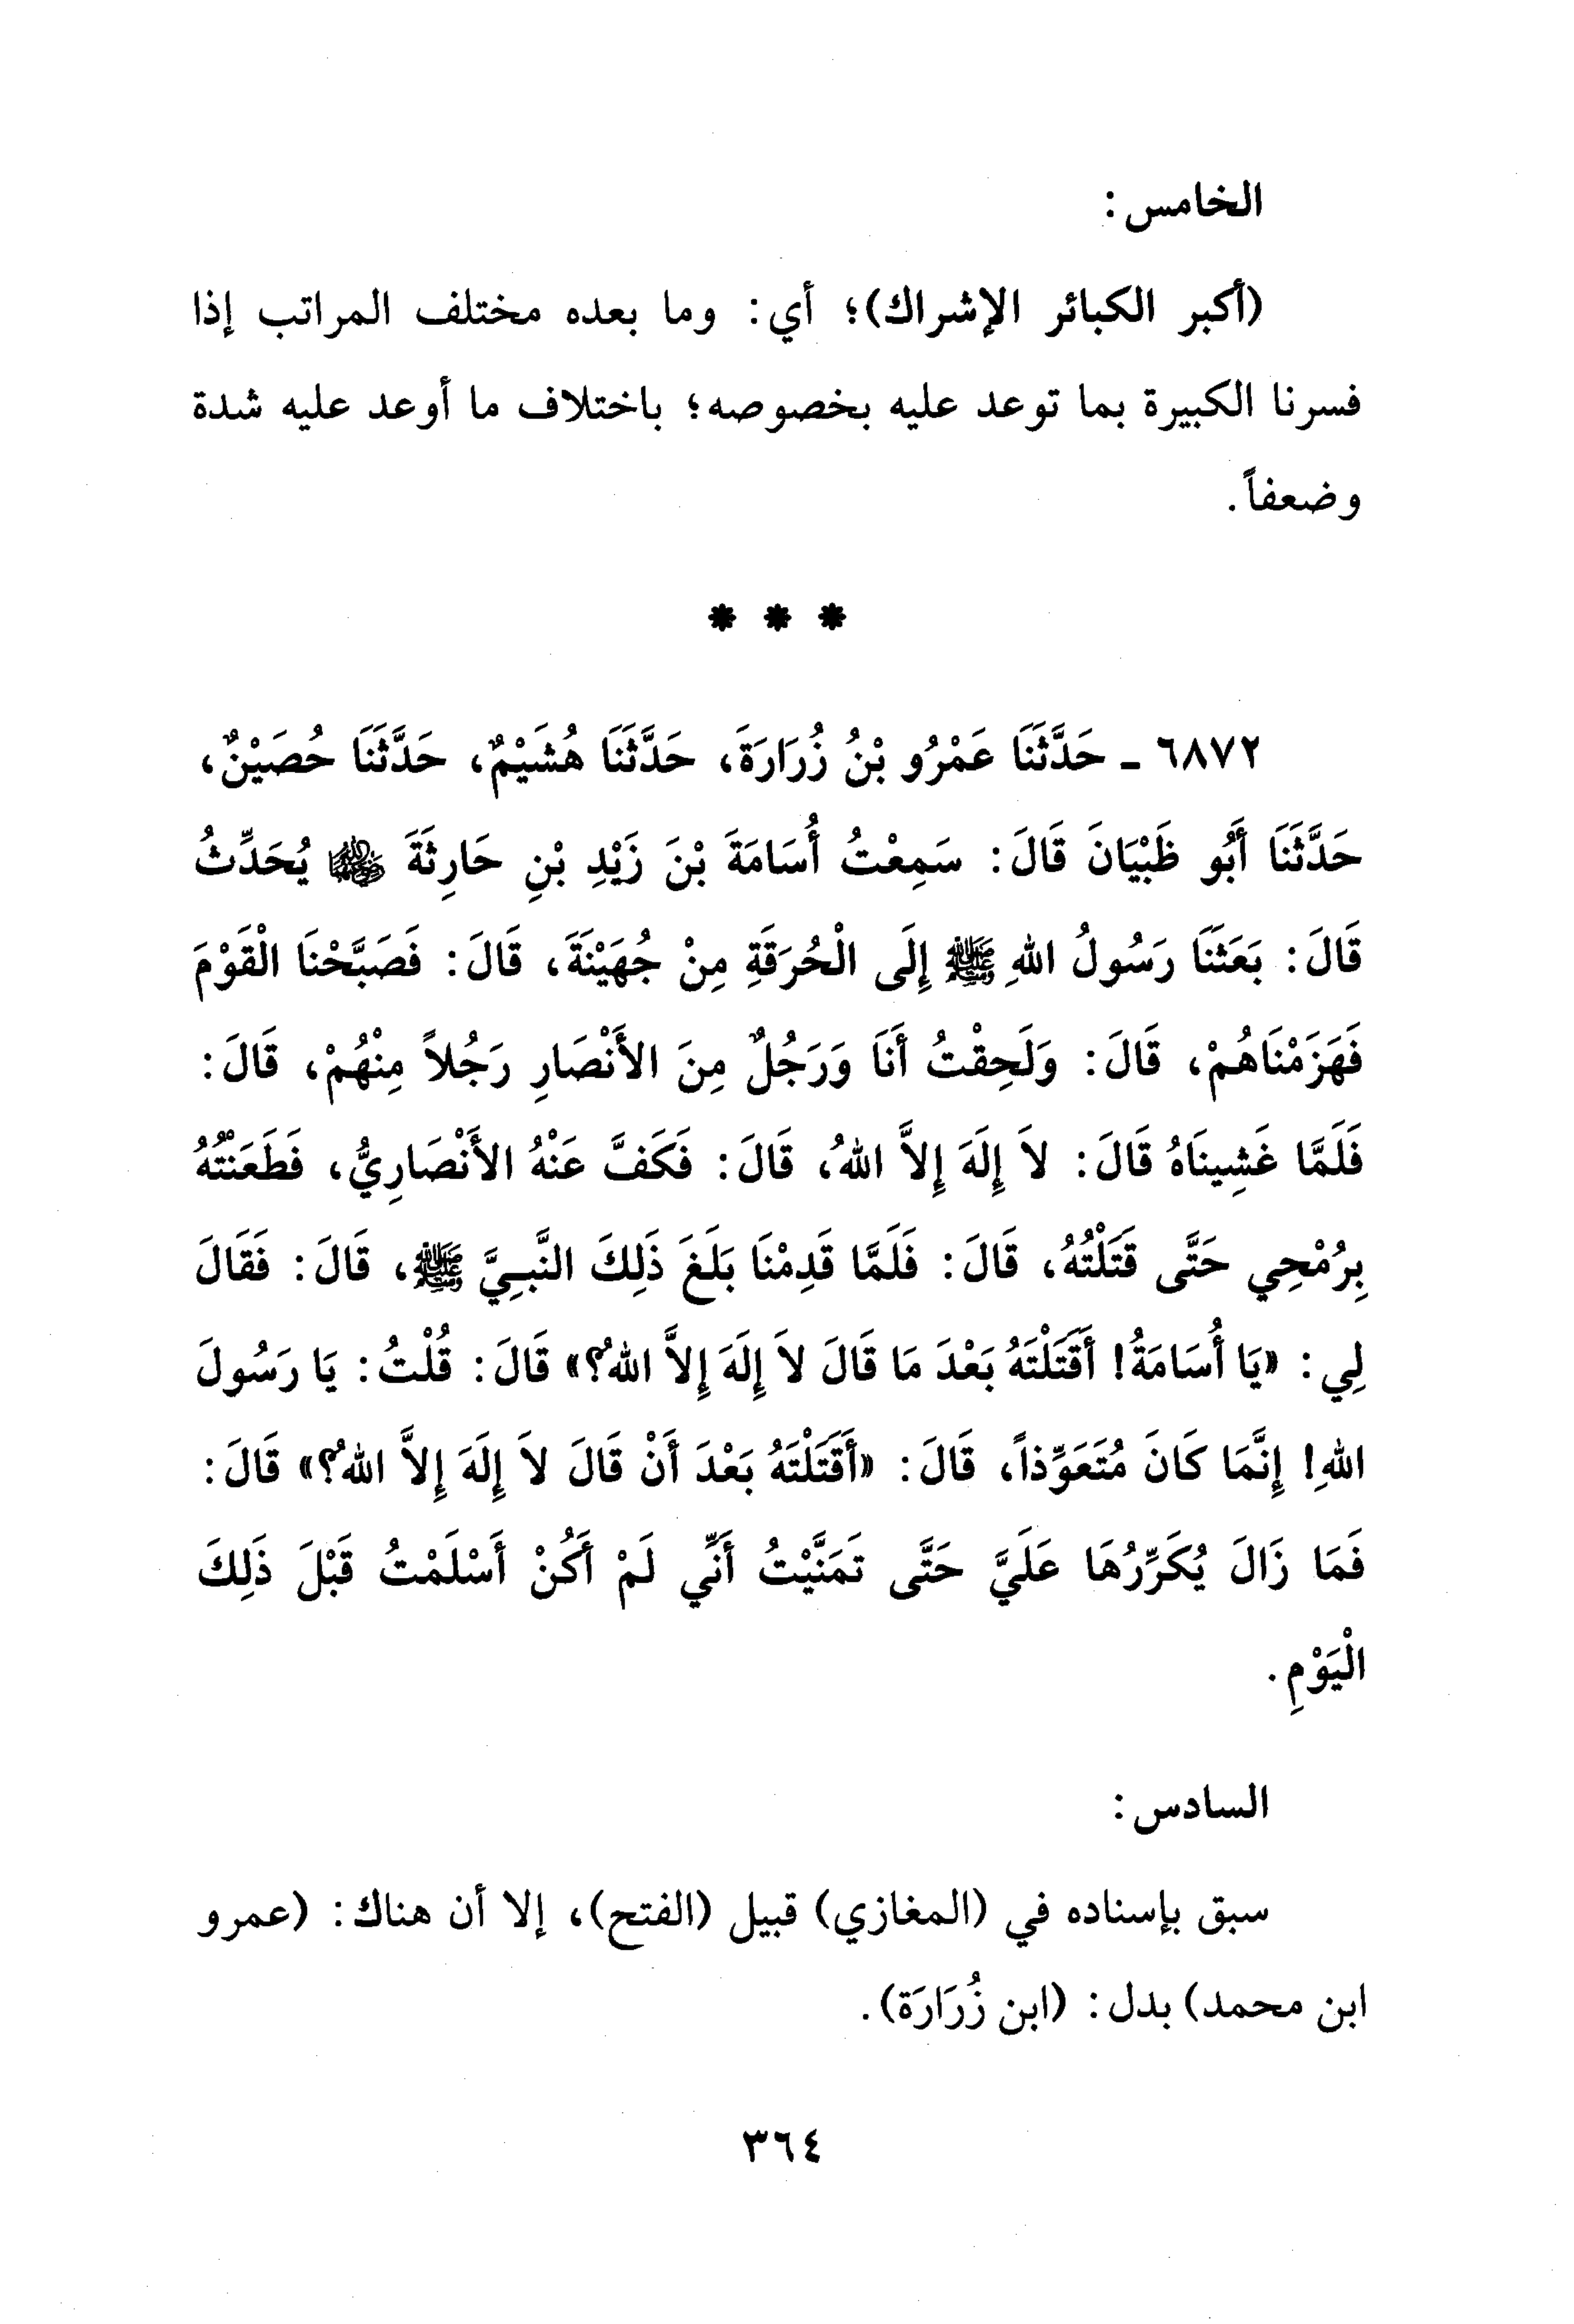 الخامس:
(أكبر الكبائر الإشراك)؛ أي: وما بعده مختلف المراتب إذا
فسرنا الكبيرة بما توعد عليه بخصوصه؛ باختلاف ما أوعد عليه شدة
وضعفاً.
* * *
٦٨٧٢ - حَدَّثَنَا عَمْرُو بْنُ زُرَارَةَ، حَدَّثَنَا هُشَيْمٌ، حَدَّثَنَا حُصَيْنٌ،
حَدَّثَنَا أَبُو ظَبْيَانَ قَالَ: سَمِعْتُ أُسَامَةَ بْنَ زَيْدِ بْنِ حَارِثَةَ رضي الله عنهما يُحَدِّثُ
قَالَ: بَعَثَنَا رَسُولُ اللهِ ﷺ إِلَى الْحُرَقَةِ مِنْ جُهَيْنَةَ، قَالَ: فَصَبَّحْنَا الْقَوْمَ
فَهَزَمْنَاهُمْ، قَالَ: وَلَحِقْتُ أَنَا وَرَجُلٌ مِنَ الأَنْصَارِ رَجُلاً مِنْهُمْ، قَالَ:
فَلَمَّا غَشِينَاهُ قَالَ: لاَ إِلَهَ إِلاَّ اللهُ، قَالَ: فَكَفَّ عَنْهُ الأَنْصَارِيُّ، فَطَعَنْتُهُ
بِرُمْحِي حَتَّى قَتَلْتُهُ، قَالَ: فَلَمَّا قَدِمْنَا بَلَغَ ذَلِكَ النَّبِيَّ ﷺ، قَالَ: فَقَالَ
لِي: «يَا أُسَامَةُ! أَقَتَلْتَهُ بَعْدَ مَا قَالَ لاَ إِلَهَ إِلاَّ اللهُ؟» قَالَ: قُلْتُ: يَا رَسُولَ
اللهِ! إِنَّمَا كَانَ مُتَعَوِّذاً، قَالَ: «أَقَتَلْتَهُ بَعْدَ أَنْ قَالَ لاَ إِلَهَ إِلاَّ اللهُ؟» قَالَ:
فَمَا زَالَ يُكَرِّرُهَا عَلَيَّ حَتَّى تَمَنَّيْتُ أَنِّي لَمْ أَكُنْ أَسْلَمْتُ قَبْلَ ذَلِكَ
الْيَوْمِ.
السادس:
سبق بإسناده في (المغازي) قبيل (الفتح)، إلا أن هناك: (عمرو
ابن محمد) بدل: (ابن زُرَارَة).
٣٦٤